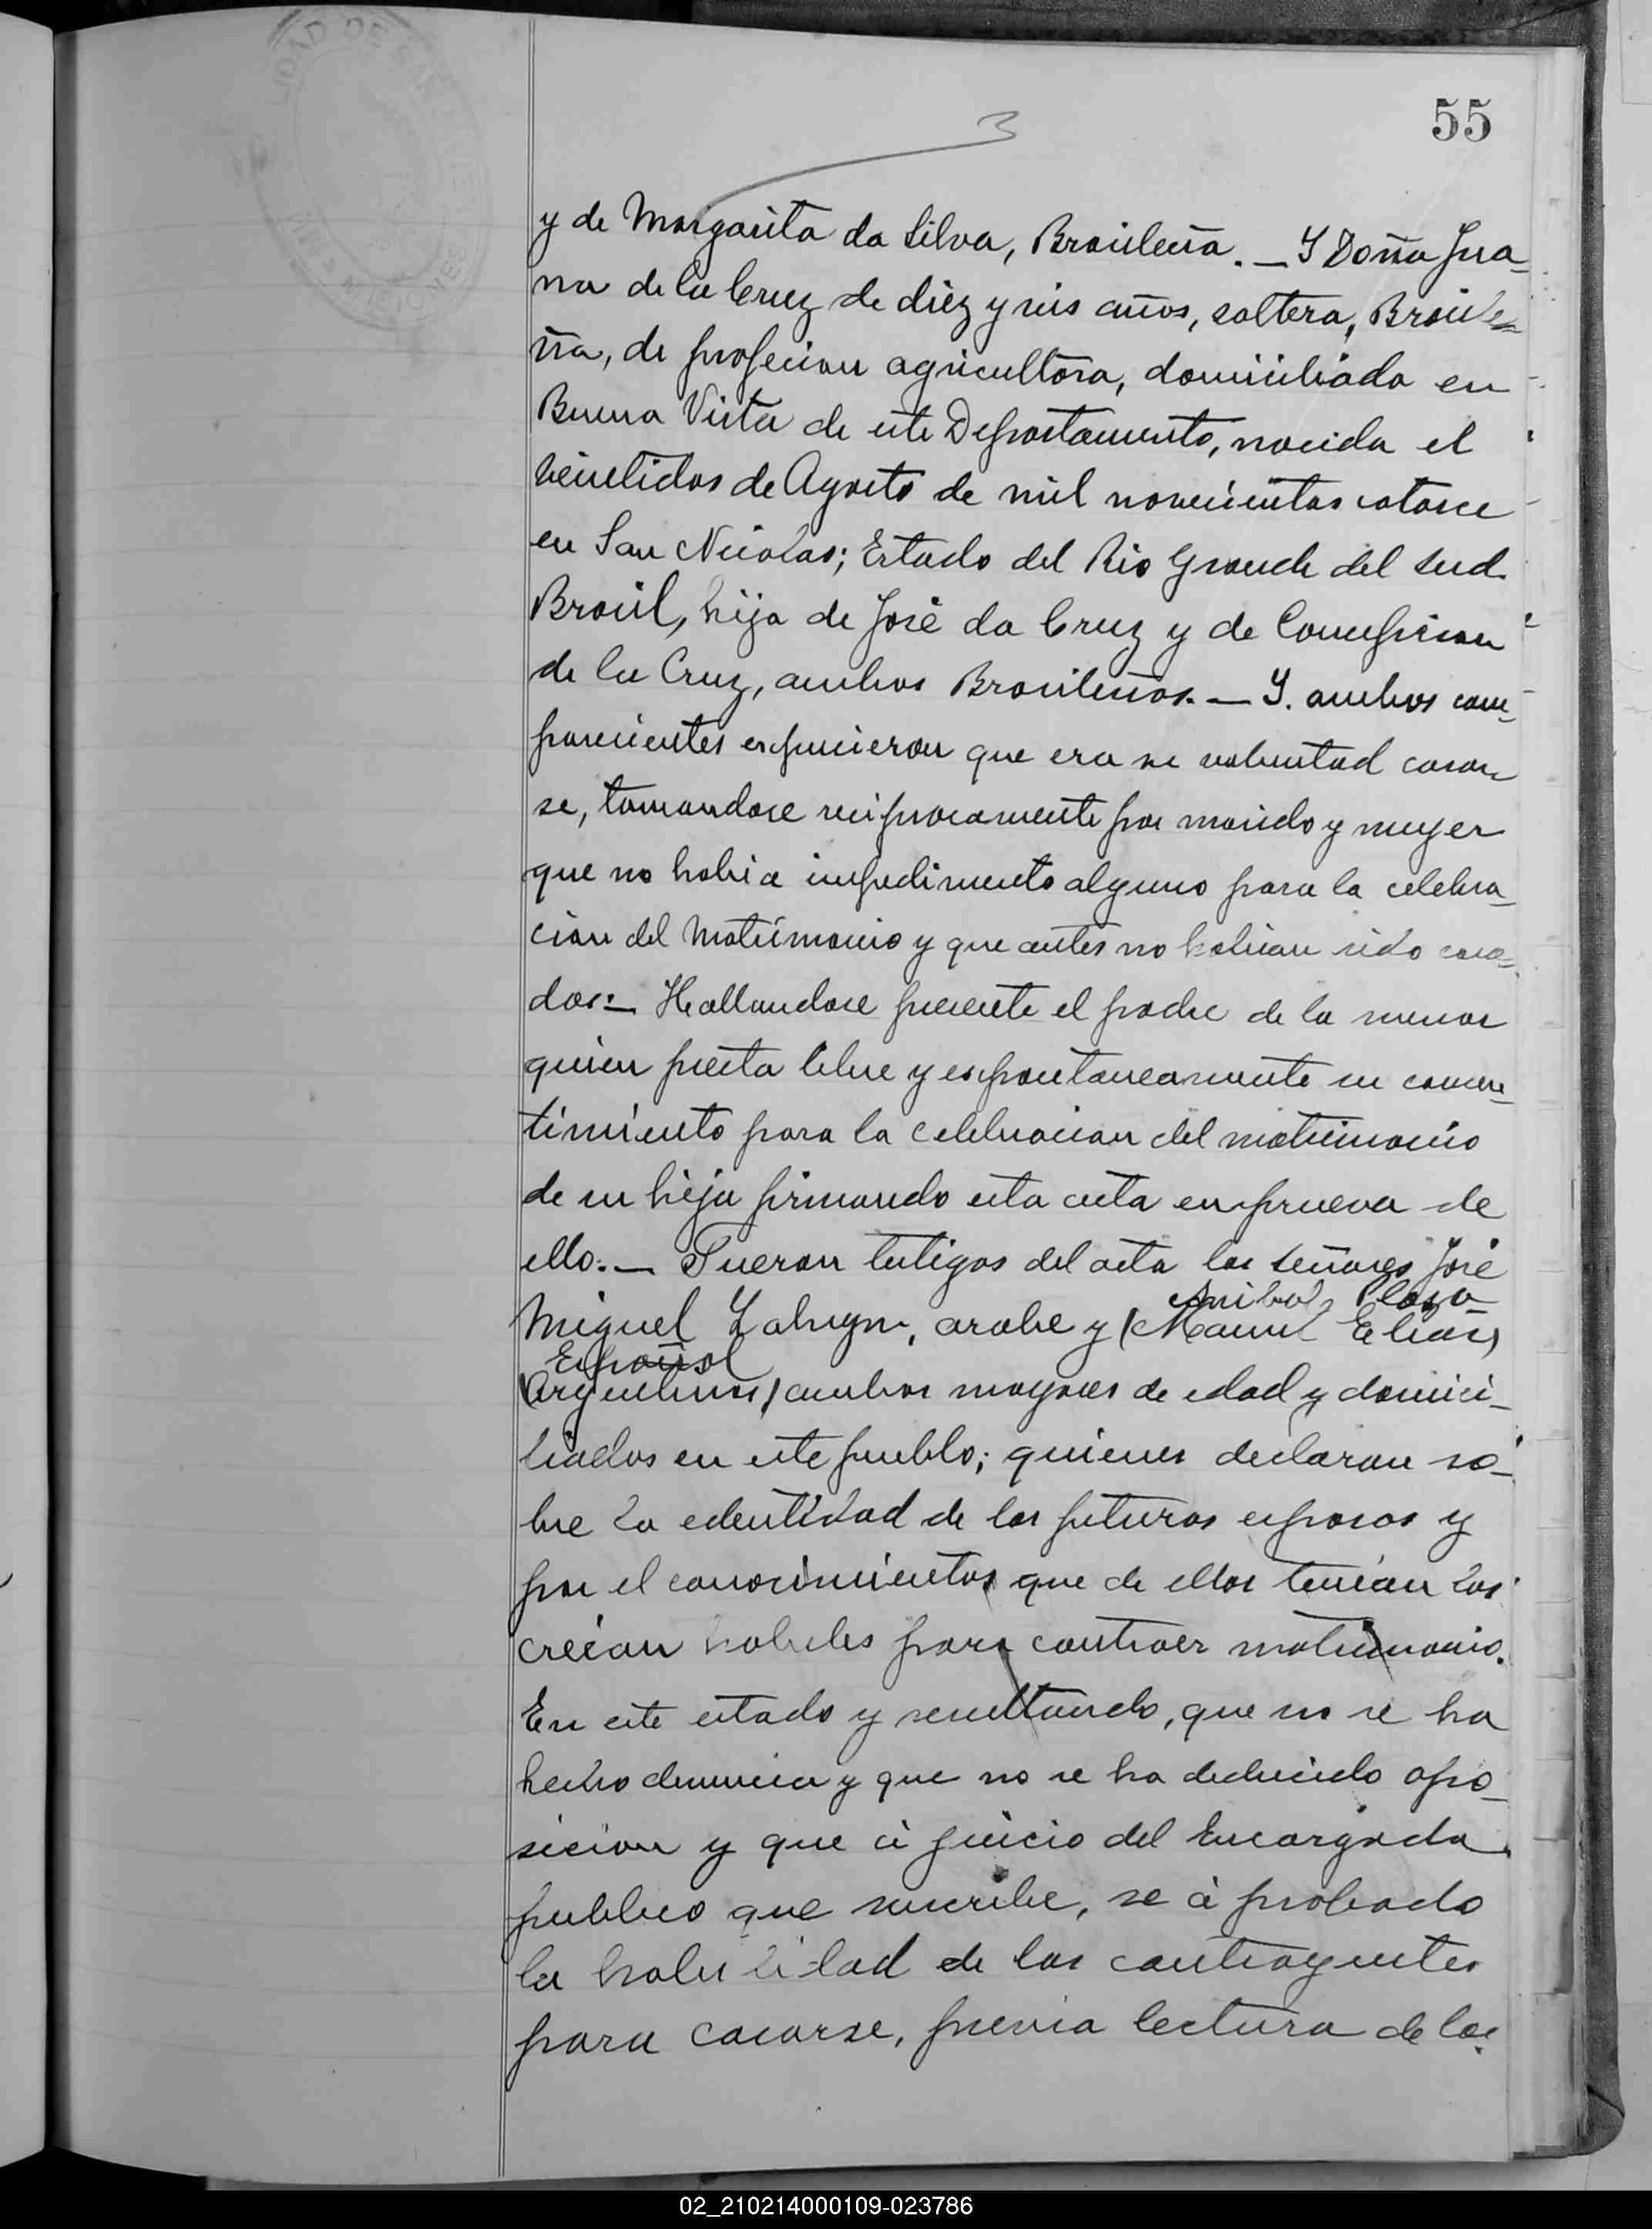 55
3
y de Margarita da Silva, Brasileña. _ Y Doña Jua_
na de la Cruz de diez y seis años, soltera, Brasile_
ña, de profecion agricultora, domiciliada en
Buena Vista de este Departamento, nacida el
veintidos de Agosto de mil novecientos catorce
en San Nicolas; Estado del Rio Grande del Sud.
Brasil, hija de José da Cruz y de Concepcion
de la Cruz, ambos Brasileños. _ Y. ambos com_
parecientes expucieron que era su voluntad casar_
se, tomandose reciprocamente por marido y muger
que no habia impedimento alguno para la celebra_
cion del Matrimonio y que antes no habian sido casa_
dos:_ Hallandose presente el padre de la menor
quien presta libre y espontaneamente su concen_
timiento para la celebracion del matrimonio
de su hija firmando esta acta en prueva de
ello._ Fueron testigos del acta los señores José
Anibal Plaza_
Miguel, arabe y (Manuel Elias)
Español
(Argentinos) ambos mayores de edad y domici_
liados en este pueblo; quienes declaran so_
bre la edentidad de los futuros esposos y
por el conocimientos que de ellos tenian los
creian habiles para contraer matrimonio.
En este estado y resultando, que no se ha
hecho denuncia y que no se ha deducido opo_
sicion y que á juicio del Encargado
publico que suscribe, se á probado
la habilidad de los contrayentes
para casarse, previa lectura de los
MISIONES
02_210214000109-023786